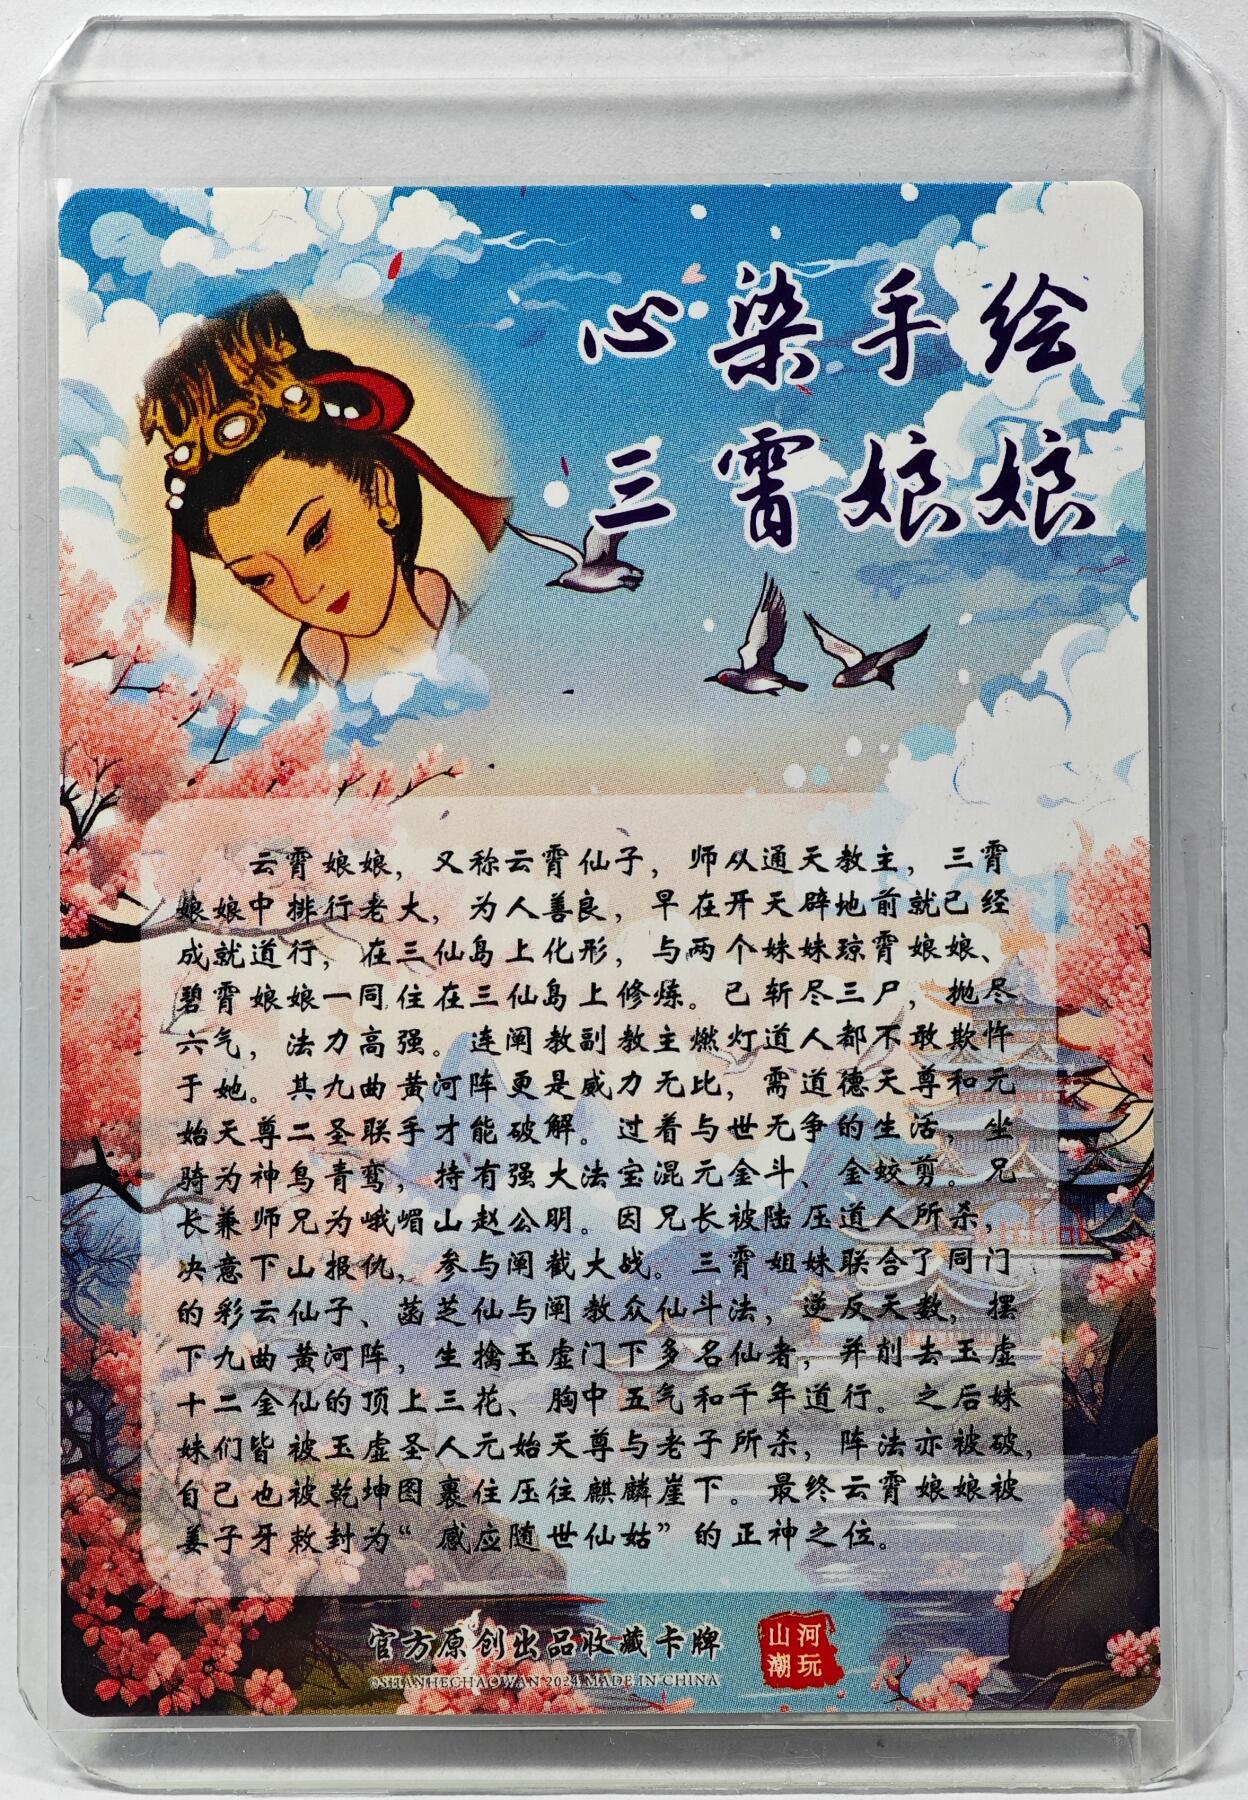 心染手绘
三霄娘娘
云霄娘娘，又称云霄仙子，师从通天教主，三霄
娘娘中排行老大，为人善良，早在开天辟地前就已经
成就道行，在三仙岛上化形，与两个妹妹琼霄娘娘、
碧霄娘娘一同住在三仙岛上修炼。已斩尽三尸，抛尽
六气，法力高强。连阐教副教主燃灯道人都不敢欺忤
于她。其九曲黄河阵更是威力无比，需道德天尊和元
始天尊二圣联手才能破解。过着与世无争的生活，坐
骑为神鸟青鸾，持有强大法宝混元金斗、金蛟剪。兄
长兼师兄为峨嵋山赵公明。因兄长被陆压道人所杀，
决意下山报仇，参与阐截大战。三霄姐妹联合了同门
的彩云仙子、菡芝仙与阐教众仙斗法，逆反天数，摆
下九曲黄河阵，生擒玉虚门下多名仙者，并削去玉虚
十二金仙的顶上三花、胸中五气和千年道行。之后妹
妹们皆被玉虚圣人元始天尊与老子所杀，阵法亦被破，
自己也被乾坤图裹住压往麒麟崖下。最终云霄娘娘被
姜子牙敕封为“感应随世仙姑”的正神之位。
官方原创出品收藏卡牌
©SHANHECHAOWAN 2024 MADE IN CHINA
山河
潮玩